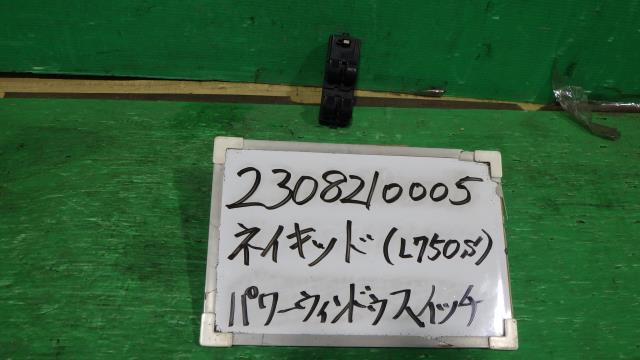 2308210005
ネイキッド(L750S)
パワーウィンドウスイッチ